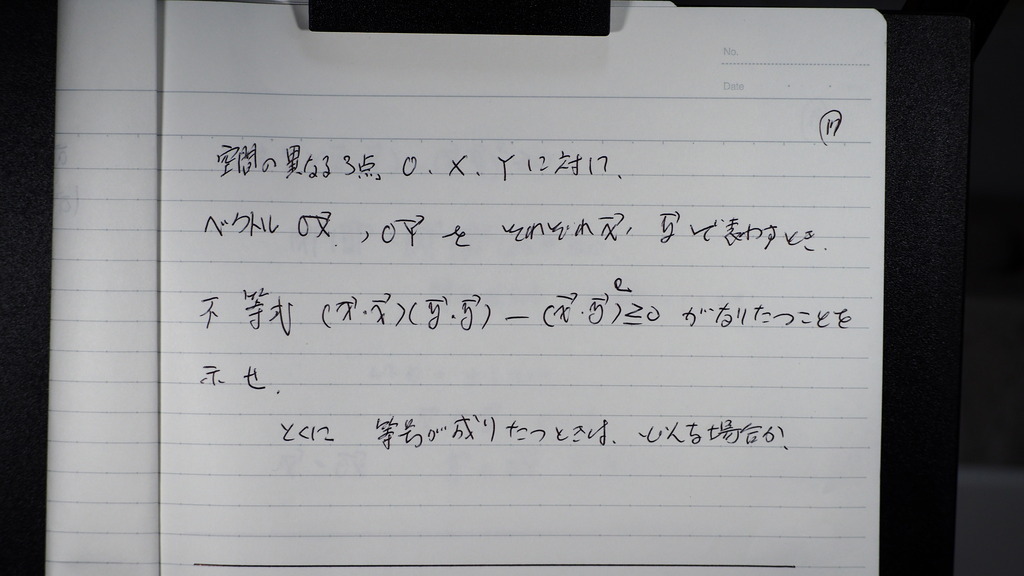 No.
Date
⑰
空間の異なる3点 O、X、Yに対して、
ベクトル OX⃗, OY⃗ を それぞれ x⃗, y⃗ で表わすとき、
不等式 (x⃗・x⃗)(y⃗・y⃗) − (x⃗・y⃗)² ≧ 0 がなりたつことを
示せ.
とくに 等号が成りたつときは、どんな場合か.